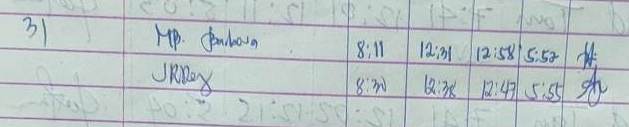 31 MB. Barbosa 8:11 12:31 12:58 5:52
JRRey 8:30 12:38 12:47 5:55